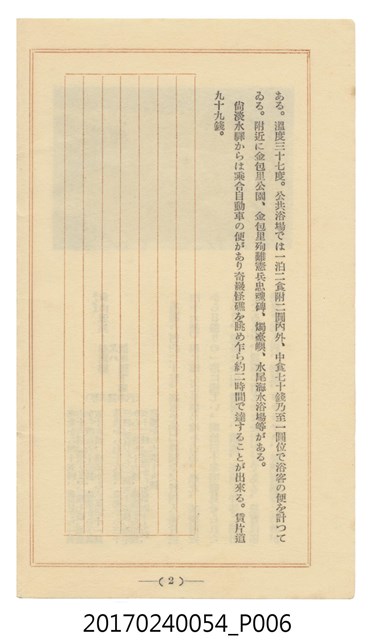 ある。溫度三十七度。公共浴場では一泊二食附二圓內外、中食七十錢乃至一圓位で浴客の便を計つて
ゐる。附近に金包里公園、金包里殉難憲兵忠魂碑、燭臺嶼、水尾海水浴場等がある。
尙淡水驛からは乘合自動車の便があり奇巖怪礁を眺め乍ら約二時間で達することが出來る。賃片道
九十九錢。
(2)
20170240054_P006